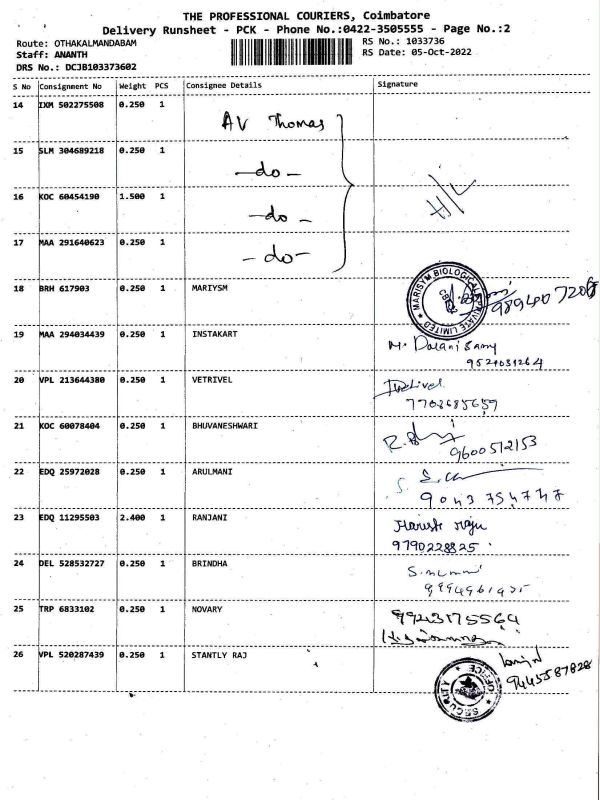 THE PROFESSIONAL COURIERS, Coimbatore
Delivery Runsheet - PCK - Phone No.:0422-3505555 - Page No.:2
Route: OTHAKALMANDABAM RS No.: 1033736
Staff: ANANTH RS Date: 05-Oct-2022
DRS No.: DCJB103373602
S No Consignment No Weight PCS Consignee Details Signature
14 IXM 502275508 0.250 1 AV Thomas
15 SLM 304689218 0.250 1 -do-
16 KOC 60454190 1.500 1 -do- H/L
17 MAA 291640623 0.250 1 -do-
18 BRH 617903 0.250 1 MARIYSM MARISYM BIOLOGICAL PRIVATE LIMITED
19 MAA 294034439 0.250 1 INSTAKART M. Dalanisamy
9521031264
20 VPL 213644380 0.250 1 VETRIVEL
7703685659
21 KOC 60078404 0.250 1 BHUVANESHWARI
9600512153
22 EDQ 25972028 0.250 1 ARULMANI
9043 754747
23 EDQ 11295503 2.400 1 RANJANI Harish raju
9790228825
24 DEL 528532727 0.250 1 BRINDHA
25 TRP 6833102 0.250 1 NOVARY 9943175564
26 VPL 520287439 0.250 1 STANTLY RAJ SECURITY OFFICE
9445587828